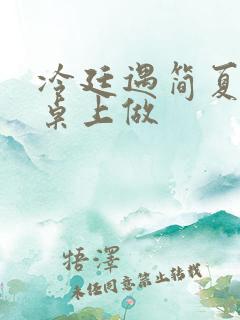 冷廷遇简夏
桌上做
牾澤
未任同意禁止转载